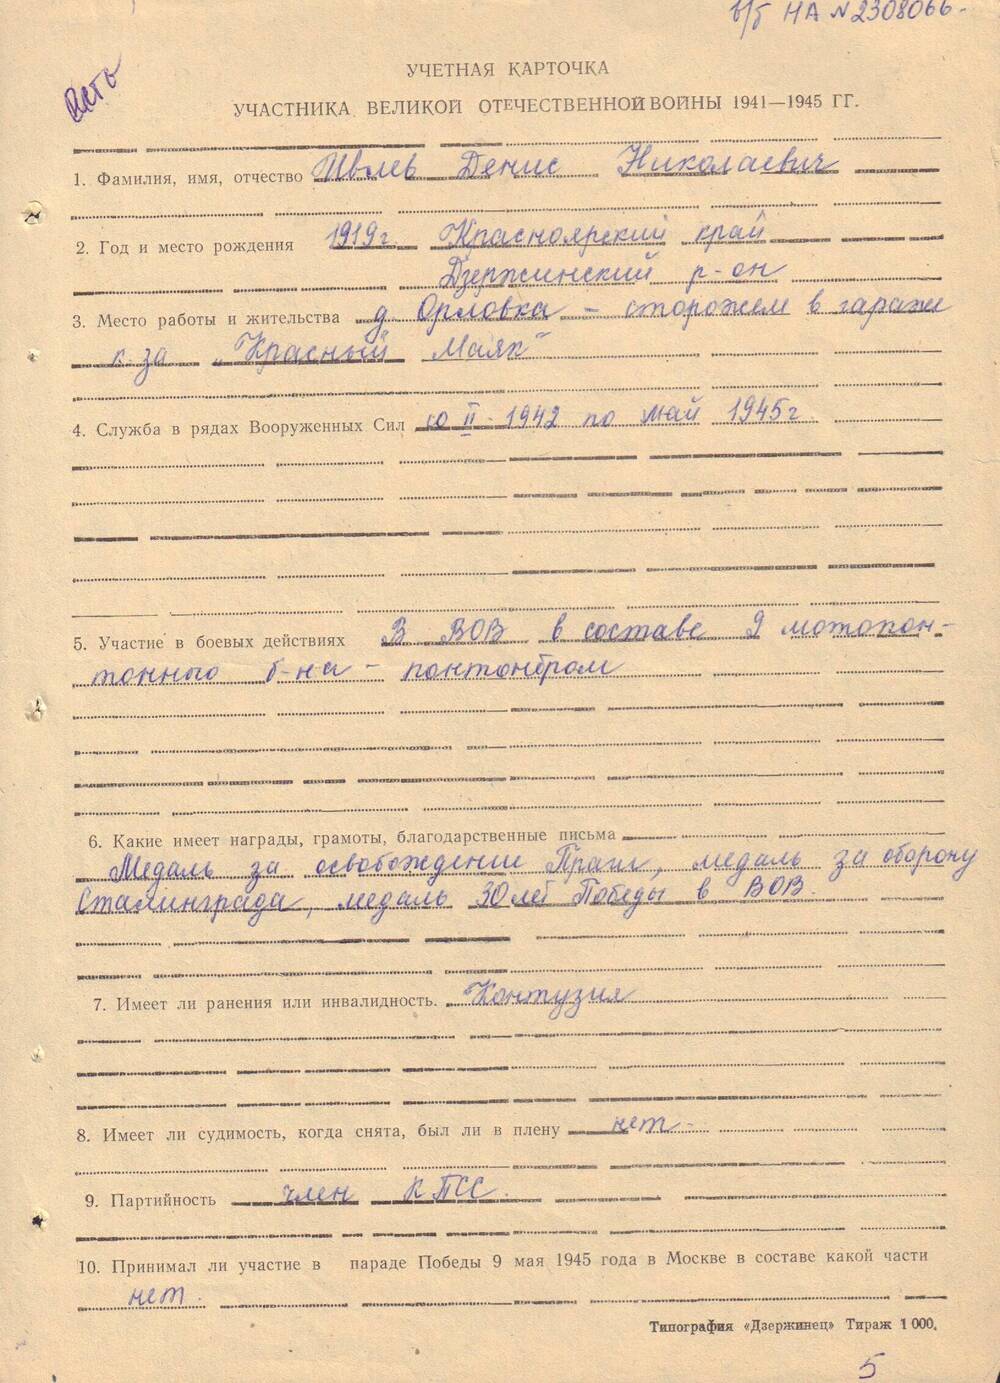 в/б НА №2308066.
есть
УЧЕТНАЯ КАРТОЧКА
УЧАСТНИКА ВЕЛИКОЙ ОТЕЧЕСТВЕННОЙ ВОЙНЫ 1941—1945 ГГ.
1. Фамилия, имя, отчество Ивлев Денис Николаевич
2. Год и место рождения 1919г. Красноярский край
Дзержинский р-он
3. Место работы и жительства д. Орловка - сторожем в гараже
к-за „Красный Маяк"
4. Служба в рядах Вооруженных Сил со II-1942 по май 1945г.
5. Участие в боевых действиях В ВОВ в составе 9 мотопон-
тонного б-на - понтонёром
6. Какие имеет награды, грамоты, благодарственные письма
Медаль за освобождение Праги, медаль за оборону
Сталинграда, медаль 30 лет Победы в ВОВ.
7. Имеет ли ранения или инвалидность. Контузия
8. Имеет ли судимость, когда снята, был ли в плену нет.
9. Партийность член КПСС.
10. Принимал ли участие в параде Победы 9 мая 1945 года в Москве в составе какой части
нет.
Типография «Дзержинец» Тираж 1 000.
5